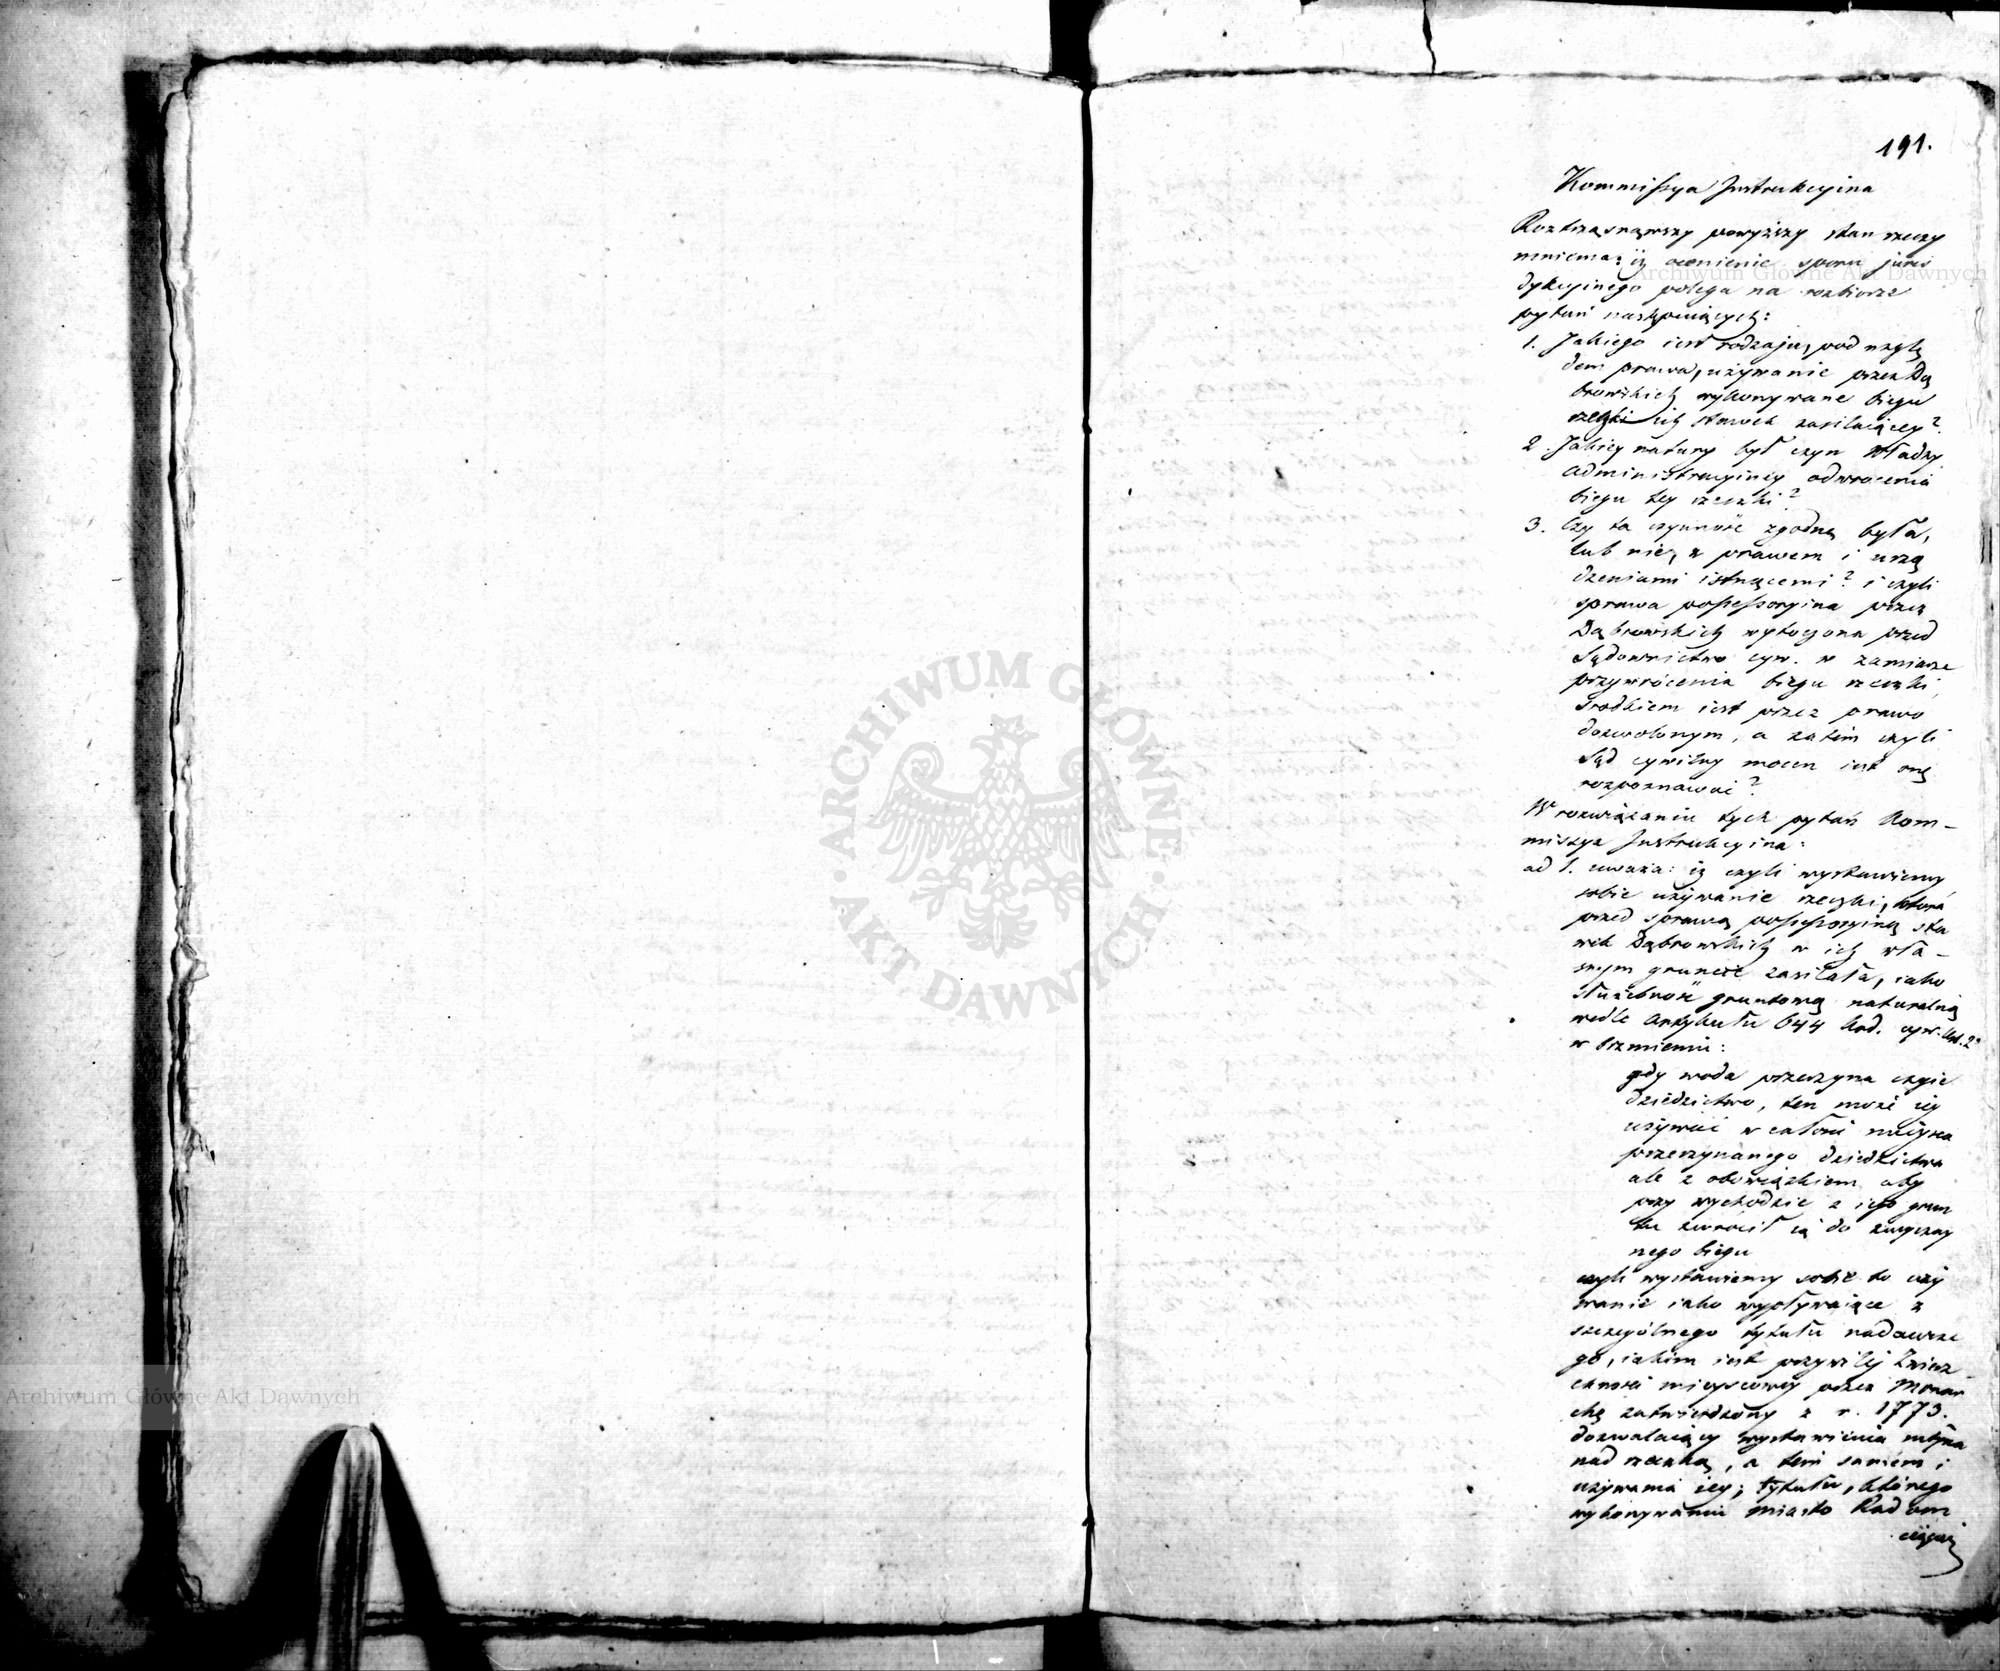 191.
Kommissya Instrukcyina
Roztrząsnąwszy powyższy stan rzeczy
mniema: iż ocenienie sporu juris
dykcyinego polega na rozbiorze
pytań następuiących:
1. Jakiego iest rodzaju, pod wzglę
dem prawa, używanie przez Dą
browskich wykonywane biegu
rzeczki ich stawek zasilaiącey?
2. Jakiey natury był czyn Władzy
Administracyiney odwrócenia
biegu tey rzeczki?
3. Czy ta czynność zgodną była,
lub nie, z prawem i urzą
dzeniami istnącemi? i czyli
sprawa possessoryina przez
Dąbrowskich wytoczona przed
Sądownictwo cyw. w zamiarze
przywrócenia biegu rzeczki,
środkiem iest przez prawo
dozwolonym, a zatém czyli
Sąd cywilny mocen iest onę
rozpoznawać?
W rozwiązaniu tych pytań Kom-
missya Instrukcyina:
ad 1. uważa: iż czyli wystawiemy
sobie używanie rzeczki, która
przed sprawą possessoryiną sta
wek Dąbrowskich w ich wła-
snym gruncie zasilała, iako
służebność gruntową naturalną
wedle Artykułu 644 Kod. cyw. Ust. 2º
w brzmieniu:
gdy woda przerzyna czyie
dziedzictwo, ten może iey
używać w całości mieysca
przerzynanego dziedzictwa
ale z obowiązkiem aby
przy wychodzie z iego grun
tu zwrócił ią do zwyczay
nego biegu
czyli wystawiemy sobie to uży
wanie iako wypływaiące z
szczególnego tytułu nadawcze
go, iakim iest przywiléj Zwierz
chności mieyscowey przez Monar
chę zatwierdzony z r. 1773.
dozwalaiący wystawienia młyna
nad rzeczką, a tém samém i
używania iey; tytułu, którego
wykonywaniu miasto Radom